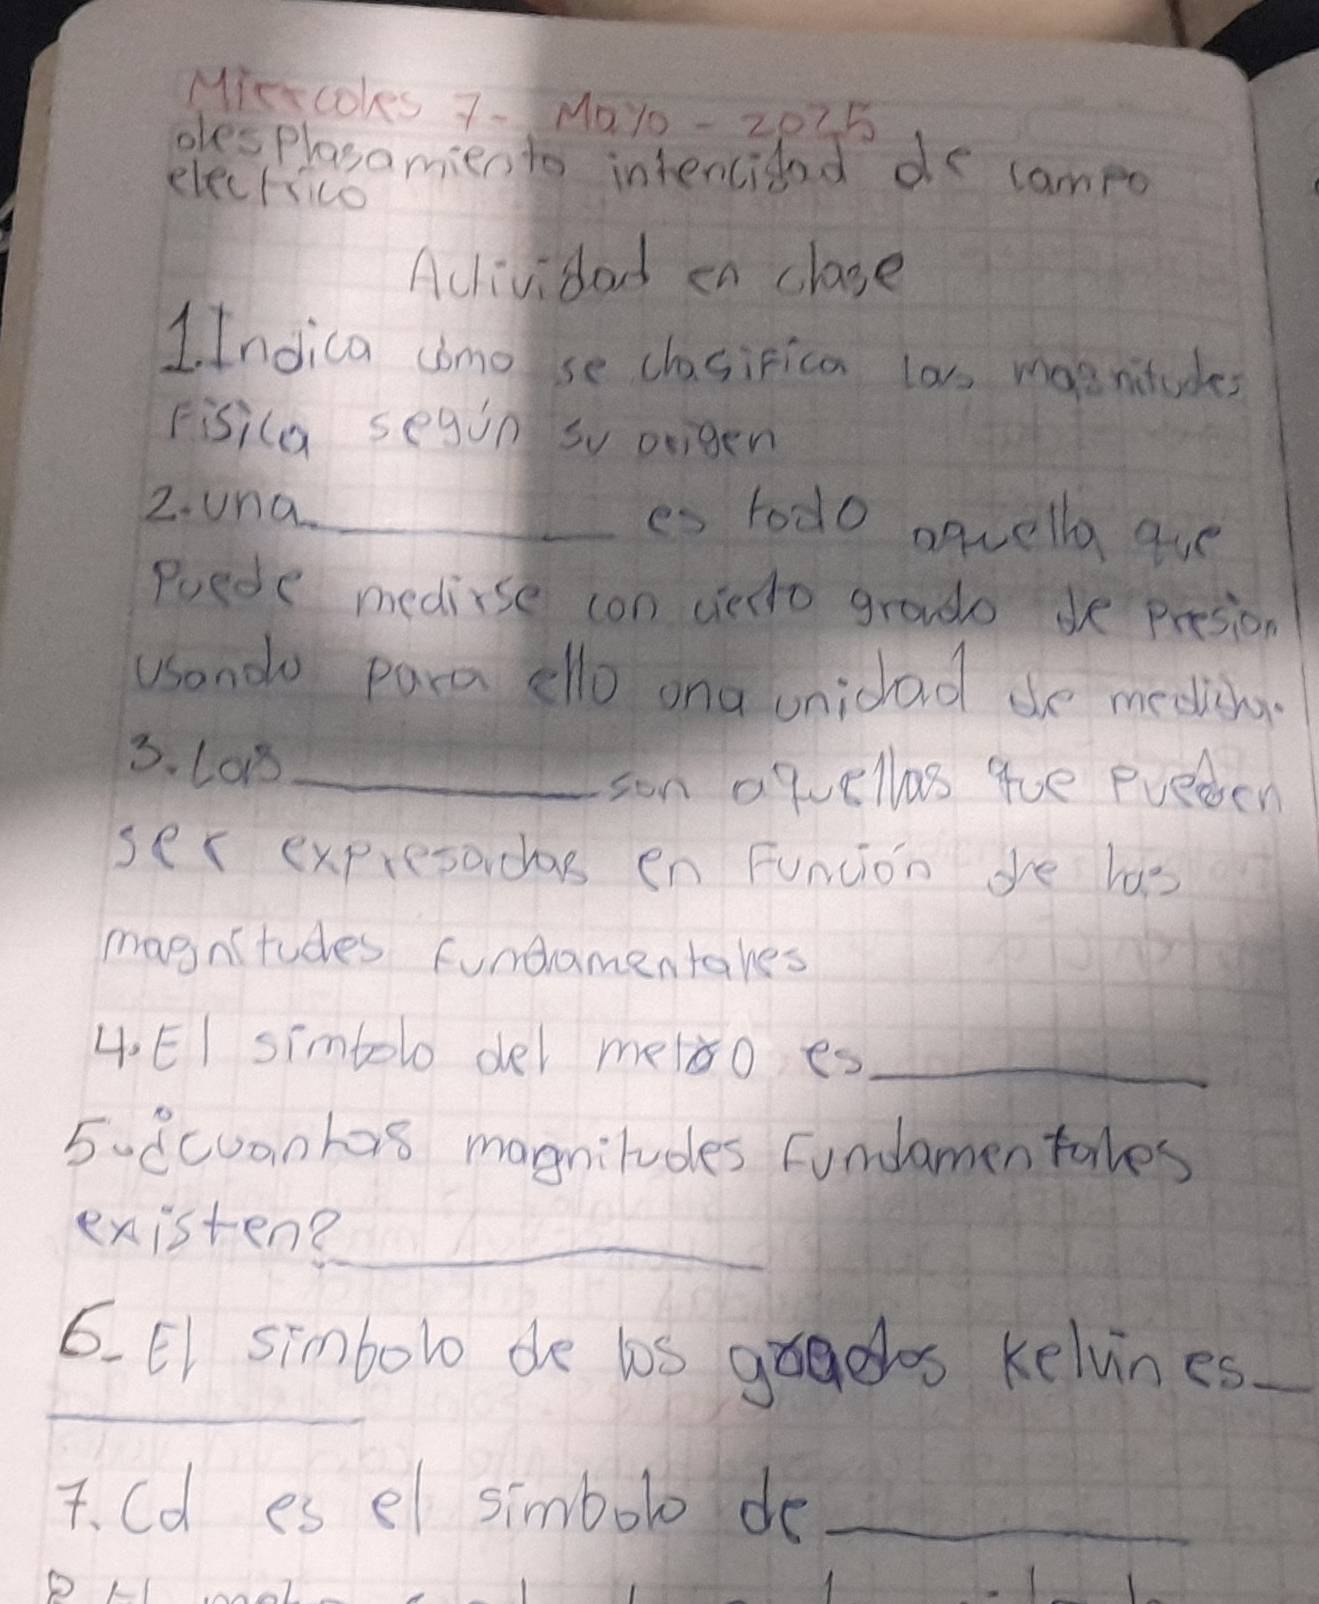 Miercoles 7- Mayo - 2025
desplasamiento intencidad de campo
electrico
Actividad en clase
1.Indica cómo se clasifica las magnitudes
Fisica según su origen
2. una __________ es todo aquella que
Puede medirse con cierto grado de Presion
usando para ello una unidad de medida.
3. Las __________ son aquellas que pueden
ser expresadas en Función de las
magnitudes fundamentales
4. El simbolo del metro es __________
5. ¿cuantas magnitudes fundamentales
existen? __________
6- El simbolo de los grados Kelvin es _
__________
7. Cd es el simbolo de __________